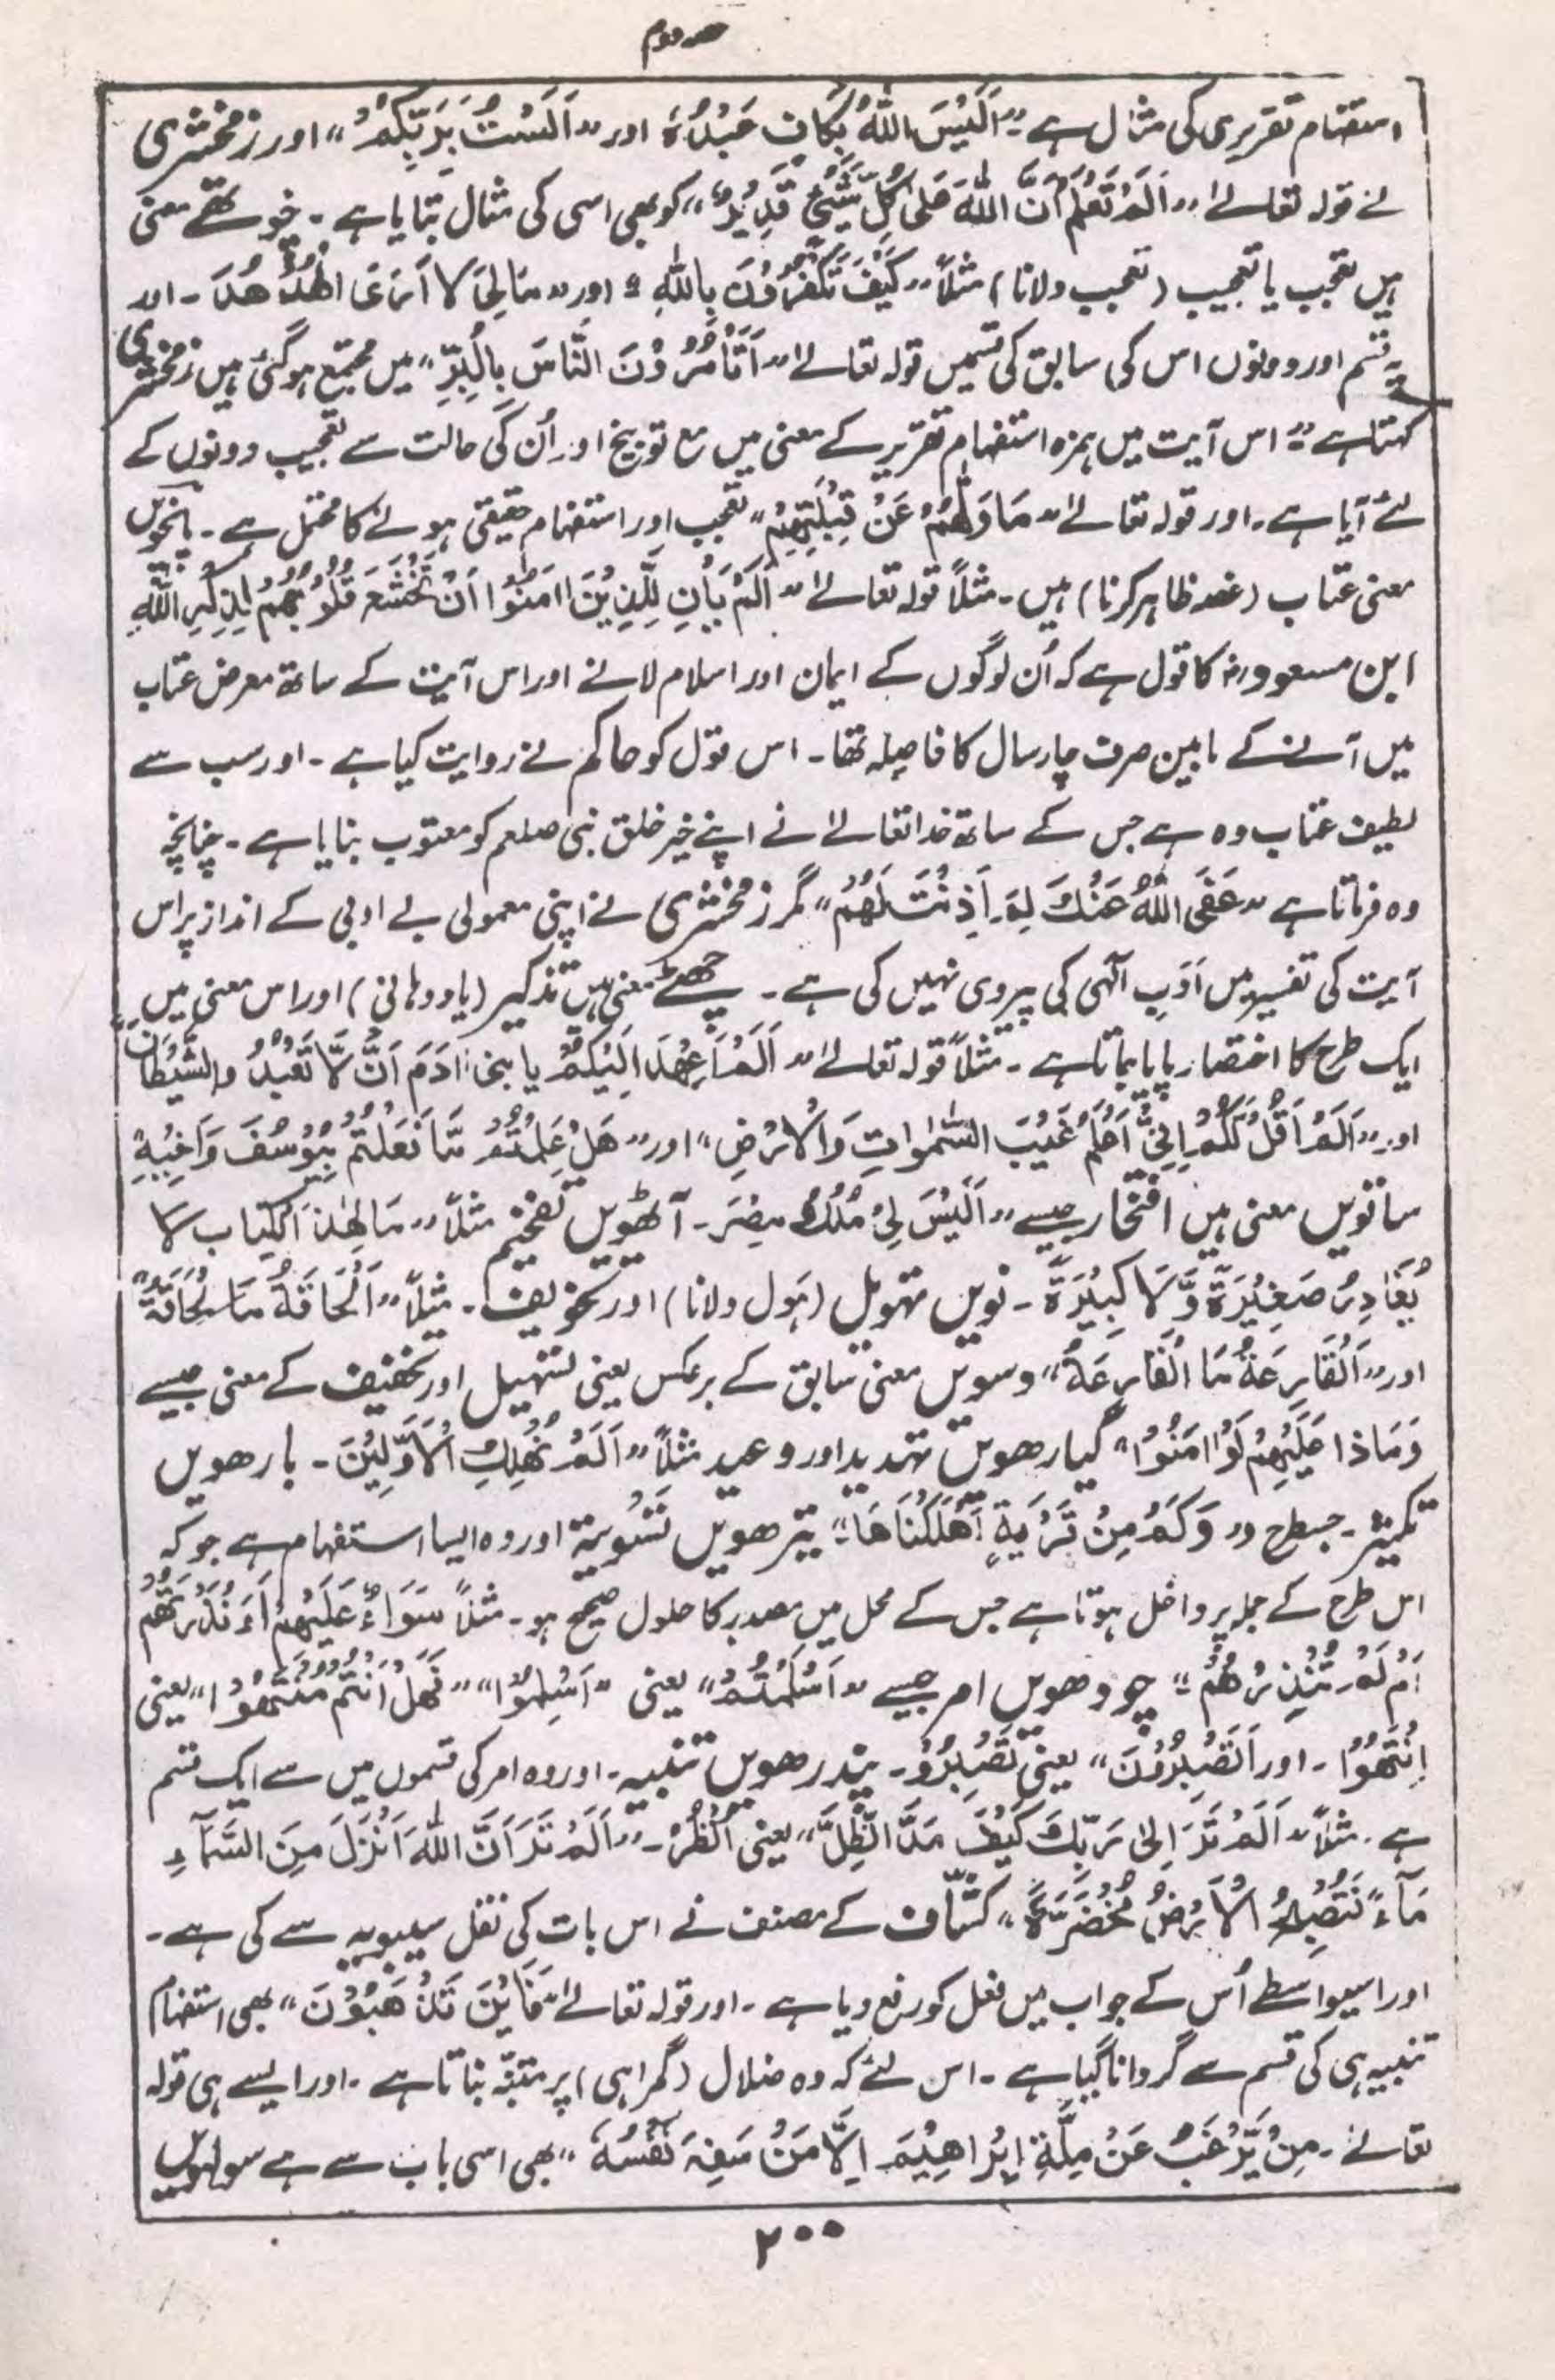 حصہ دوم
استفہام تقریری کی مثال ہے "اَلَیْسَ اللّٰہُ بِکَافٍ عَبْدُہٗ اور "اَلَسْتُ بِرَبِّکُمْ" اور زمخشری
نے قولہ تعالےٰ "اَلَمْ تَعْلَمْ اَنَّ اللّٰہَ عَلٰی کُلِّ شَیْئٍ قَدِیْرٌ" کو بھی اسی کی مثال بتایا ہے۔ چوتھے معنی
ہیں تعجب یا تعجیب (تعجب دلانا) مثلاً "کَیْفَ تَکْفُرُوْنَ بِاللّٰہِ" اور "مَالِیَ لَا اَرَی الْھُدْ ھُدَ۔ اور
یہ قسم اور دونوں اس کی سابق کی قسمیں قولہ تعالےٰ "اَتَأْمُرُوْنَ النَّاسَ بِالْبِرِّ" میں مجتمع ہوگئی ہیں زمخشری
کہتا ہے" اس آیت میں ہمزہ استفہام تقریر کے معنی میں مع توبیخ اور اُن کی حالت سے تعجیب دونوں کے
لئے آیا ہے۔ اور قولہ تعالےٰ "مَاوَلّٰھُمْ عَنْ قِبْلَتِھِمْ" تعجب اور استفہام حقیقی ہونے کا محتمل ہے۔ پانچویں
معنی عتاب (غصہ ظاہر کرنا) ہیں۔ مثلاً قولہ تعالےٰ "اَلَمْ یَأْنِ لِلَّذِیْنَ اٰمَنُوْا اَنْ تَخْشَعَ قُلُوْبُھُمْ لِذِکْرِ اللّٰہِ
ابن مسعود رض کا قول ہے کہ اُن لوگوں کے ایمان اور اسلام لانے اور اس آیت کے ساتھ معرض عتاب
میں آنے کے مابین صرف چار سال کا فاصلہ تھا۔ اس قول کو حاکم نے روایت کیا ہے۔ اور سب سے
لطیف عتاب وہ ہے جس کے ساتھ خدا تعالےٰ نے اپنے خیر خلق نبی صلعم کو معتوب بنایا ہے۔ چنانچہ
وہ فرماتا ہے "عَفَی اللّٰہُ عَنْکَ لِمَ اَذِنْتَ لَھُمْ" مگر زمخشری نے اپنی معمولی بے ادبی کے انداز پر اس
آیت کی تفسیر میں اَدَبِ الٰہی کی پیروی نہیں کی ہے۔ چھٹے معنی ہیں تذکیر (یاد دہانی) اور اس معنی میں
ایک طرح کا اختصار پایا جاتا ہے۔ مثلاً قولہ تعالےٰ "اَلَمْ اَعْھَدْ اِلَیْکُمْ یا بنی اٰدَمَ اَنْ لَّا تَعْبُدُ والشَّیْطَانَ"
اور "اَلَمْ اَقُلْ لَّکُمْ اِنِّیْ اَعْلَمُ غَیْبَ السَّمٰوَاتِ وَالْاَرْضِ" اور "ھَلْ عَلِمْتُمْ مَّا فَعَلْتُمْ بِیُوْسُفَ وَاَخِیْہِ
ساتویں معنی ہیں افتخار جیسے "اَلَیْسَ لِیْ مُلْکُ مِصْرَ۔ آٹھویں تفخیم مثلاً "مَالِ ھٰذَا الْکِتَابِ لَا
یُغَادِرُ صَغِیْرَۃً وَّلَا کَبِیْرَۃً۔ نویں تہویل (ہَول دلانا) اور تخویف۔ مثلاً "اَلْحَاقَّۃُ مَا الْحَاقَّۃُ"
اور "اَلْقَارِعَۃُ مَا الْقَارِعَۃُ" دسویں معنی سابق کے برعکس یعنی تسہیل اور تخفیف کے معنی جیسے
وَمَاذا عَلَیْھِمْ لَوْاٰمَنُوْا" گیارھویں تہدید اور وعید مثلاً "اَلَمْ نُھْلِکِ الْاَوَّلِیْنَ۔ بارھویں
تکثیر۔ جسطرح "وَکَمْ مِنْ قَرْیَۃٍ اَھْلَکْنَاھَا" تیرھویں تَسْوِیَۃ اور وہ ایسا استفہام ہے جو کہ
اس طرح کے جملہ پر داخل ہوتا ہے جس کے محل میں مصدر کا حلول صحیح ہو۔ مثلاً سَوَاءٌ عَلَیْھِمْ اَءَنْذَرْتَھُمْ
اَمْ لَمْ تُنْذِرْھُمْ" چودھویں امر جیسے "اَسْلَمْتُمْ" یعنی "اَسْلِمُوْا" "فَھَلْ اَنْتُمْ مُنْتَھُوْا" یعنی
اِنْتَھُوْا۔ اور اَتَصْبِرُوْنَ" یعنی تَصْبِرُوْ۔ پندرھویں تنبیہ۔ اور وہ امر کی قسموں میں سے ایک قسم
ہے۔ مثلاً "اَلَمْ تَرَ اِلٰی رَبِّکَ کَیْفَ مَدَّ الظِّلَّ" یعنی اُنْظُرْ۔ "اَلَمْ تَرَ اَنَّ اللّٰہَ اَنْزَلَ مِنَ السَّمَآءِ
مَآءً فَتُصْبِحُ الْاَرْضُ مُخْضَرَّۃً" کشّاف کے مصنف نے اس بات کی نقل سیبویہ سے کی ہے۔
اور اسیواسطے اُس کے جواب میں فعل کو رفع دیا ہے۔ اور قولہ تعالےٰ "فَاَیْنَ تَذْھَبُوْنَ" بھی استفہام
تنبیہ ہی کی قسم سے گردانا گیا ہے۔ اس لئے کہ وہ ضلال (گمراہی) پر متنبّہ بناتا ہے۔ اور ایسے ہی قولہ
تعالےٰ۔ مِنْ یَّرْغَبُ عَنْ مِلَّۃِ اِبْرَاھِیْمَ اِلَّا مَنْ سَفِہَ نَفْسُہٗ" بھی اسی باب سے ہے سولہویں
۲۰۰